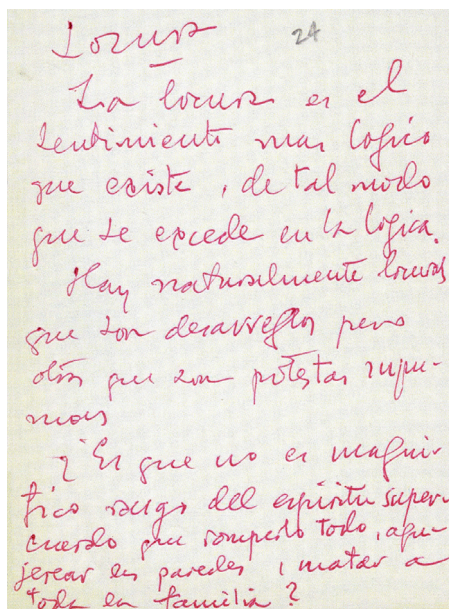 Locura
24
La locura es el
sentimiento mas logico
que existe, de tal modo
que se excede en la logica.
Hay naturalmente locuras
que son desarreglos pero
otras que son protestas supre-
mas
¿Es que no es magni-
fico rasgo del espiritu super-
cuerdo que romperlo todo, agu-
jerear las paredes, matar a
toda la familia?